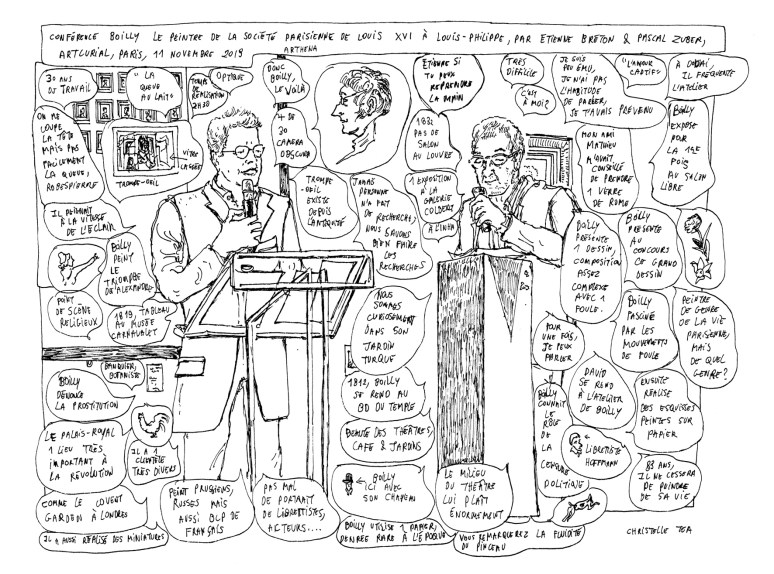 CONFÉRENCE BOILLY LE PEINTRE DE LA SOCIÉTÉ PARISIENNE DE LOUIS XVI À LOUIS-PHILIPPE, PAR ETIENNE BRETON & PASCAL ZUBER,
ARTCURIAL, PARIS, 11 NOVEMBRE 2019
ARTHENA
30 ANS
DU TRAVAIL
"LA
QUEUE
AU LAIT"
TEMPS
DE
RÉALISATION
2H30
OPTIQUE
DONC
BOILLY,
LE VOILÀ
ETIENNE SI
TU PEUX
REPRENDRE
LA MAIN
TRÈS
DIFFICILE
C'EST
À MOI?
JE SUIS
PEU ÉMU,
JE N'AI PAS
L'HABITUDE
DE PARLER,
JE T'AVAIS PRÉVENU
"L'AMOUR
CAPTIF"
À DOUAI,
IL FRÉQUENTE
L'ATELIER
ON ME
COUPE
LA TÊTE
MAIS PAS
FACILEMENT
LA QUEUE,
ROBESPIERRE
VITRE
CASSÉE
TROMPE-OEIL
4 DE
30
CAMERA
OBSCURA
1832
PAS DE
SALON
AU LOUVRE
MON AMI
MATHIEU
M'AVAIT
CONSEILLÉ
DE PRENDRE
1 VERRE
DE RHUM
BOILLY
EXPOSE
POUR
LA 1RE
FOIS
AU SALON
LIBRE
TROMPE-
OEIL
EXISTE
DEPUIS
L'ANTIQUITÉ
JAMAIS
PERSONNE
N'A FAIT
DE RECHERCHES,
NOUS SAVONS
BIEN FAIRE
LES
RECHERCHES
1 EXPOSITION
À LA
GALERIE
COLBERT
À L'INHA
IL PEIGNAIT
À LA VITESSE
DE L'ECLAIR
BOILLY
PEINT
LE
TRIOMPHE
D'ALEXANDRE
BOILLY
PRÉSENTE
1 DESSIN,
COMPOSITION
ASSEZ
COMPLEXE
AVEC 1
FOULE.
BOILLY
PRÉSENTE
AU
CONCOURS
CE GRAND
DESSIN
POINT
DE SCÈNE
RELIGIEUX
1819, TABLEAU
AU MUSÉE
CARNAVALET
NOUS
SOMMES
CURIEUSEMENT
DANS SON
JARDIN
TURQUE
POUR
UNE FOIS,
JE PEUX
PARLER
BOILLY
FASCINÉ
PAR LES
MOUVEMENTS
DE FOULE
PEINTRE
DE GENRE
DE LA VIE
PARISIENNE,
MAIS
DE QUEL
GENRE?
BANQUIER,
BOTANISTE
BOILLY
DÉNONCE
LA PROSTITUTION
1812, BOILLY
SE REND AU
BD DU TEMPLE
BOILLY
CONNAIT
LE
RÔLE
DE
LA
CENSURE
POLITIQUE
DAVID
SE REND
À L'ATELIER
DE BOILLY
ENSUITE
RÉALISE
DES ESQUISSES
PEINTES SUR
PAPIER
LE PALAIS-ROYAL
1 LIEU TRÈS
IMPORTANT À
LA RÉVOLUTION
IL A 1
CLIENTÈLE
TRÈS DIVERS
BEAUTÉ DES THÉÂTRES,
CAFÉ & JARDINS
LIBRETTISTE
HOFFMANN
COMME LE COVENT
GARDEN À LONDRES
PEINT PRUSSIENS,
RUSSES MAIS
AUSSI BLP DE
FRANÇAIS
PAS MAL
DE PORTRAIT
DE LIBRETTISTES,
ACTEURS....
BOILLY
ICI AVEC
SON CHAPEAU
LE MILIEU
DU THÉÂTRE
LUI PLAÎT
ÉNORMÉMENT
83 ANS,
IL NE CESSERA
DE PEINDRE
DE SA VIE
IL A AUSSI RÉALISÉ DES MINIATURES
BOILLY UTILISE 1 PAPIER,
DENRÉE RARE À L'ÉPOQUE
VOUS REMARQUEREZ LA FLUIDITÉ
DU PINCEAU
CHRISTELLE TEA